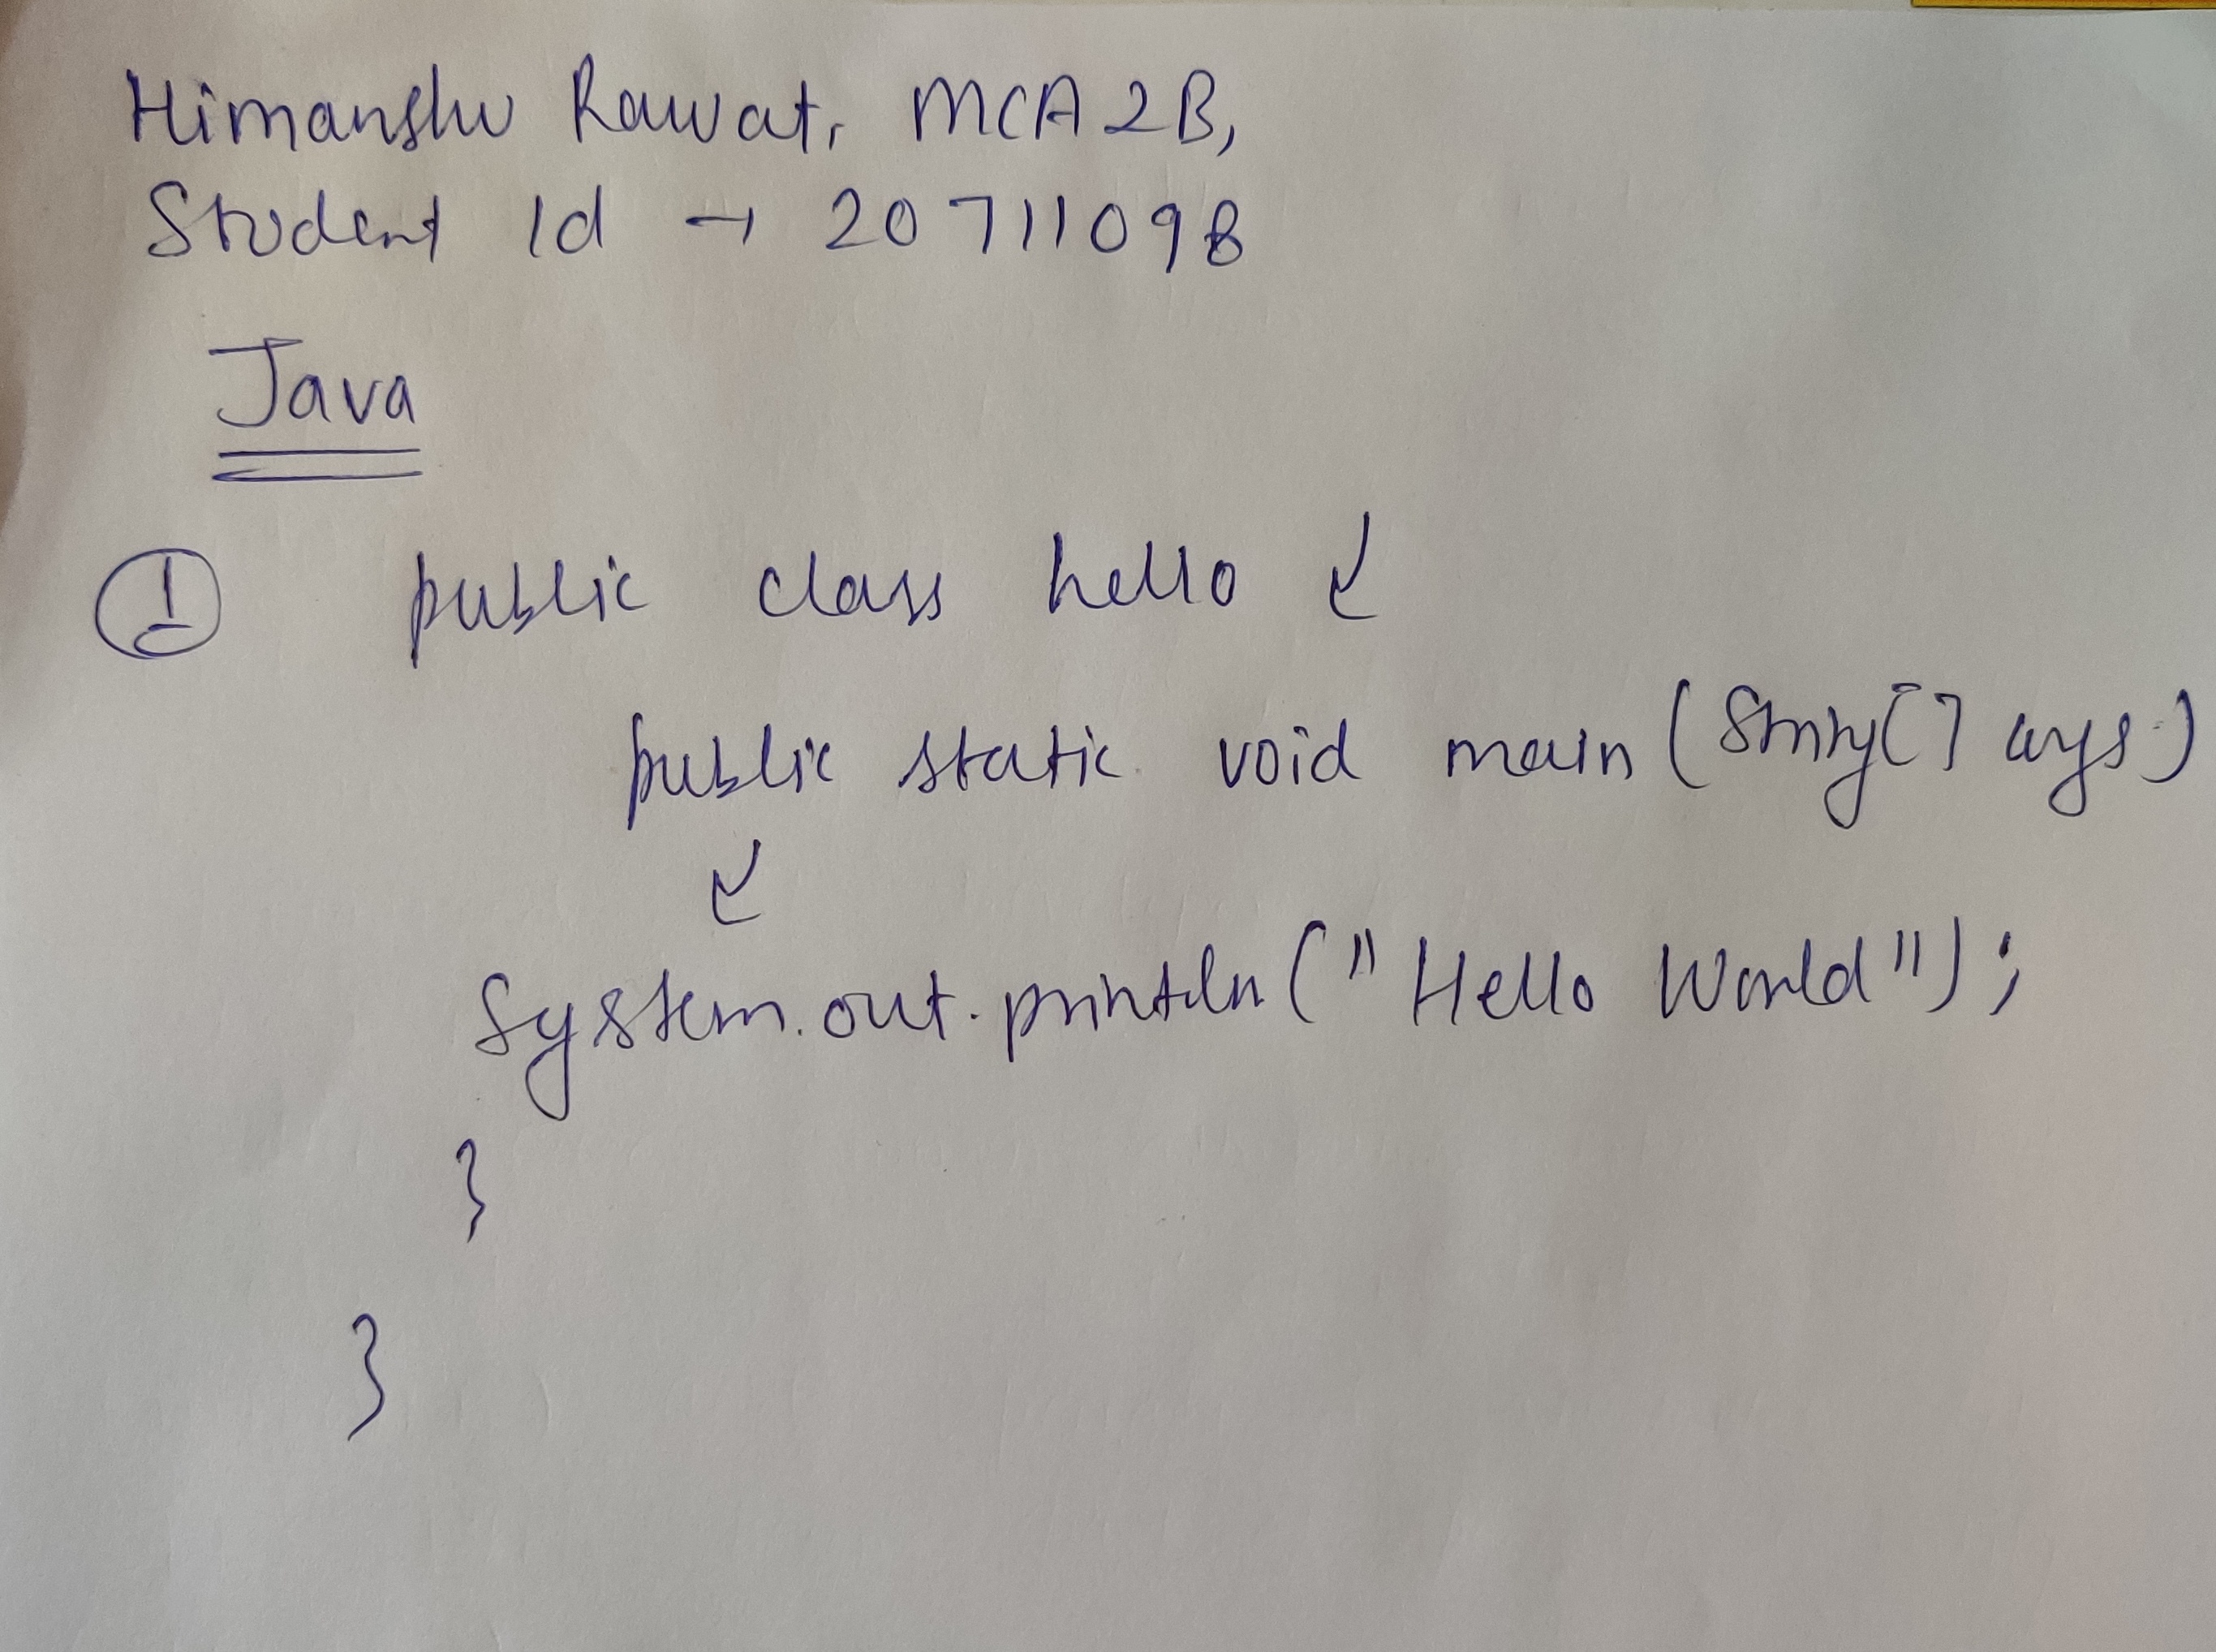 Himanshu Rawat, MCA 2B,
Student Id → 20711098
Java
1 public class hello {
public static void main (String[] args)
{
System.out.println ("Hello World");
}
}